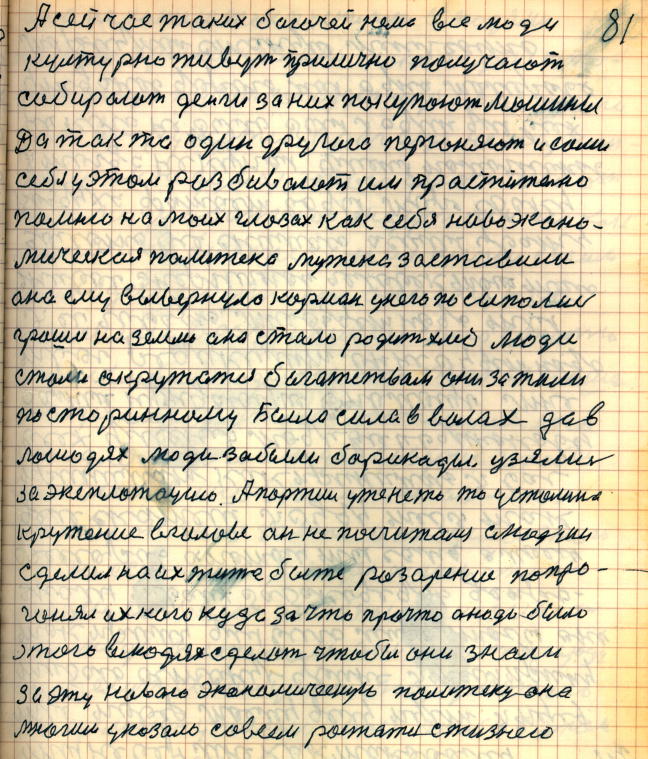 81
А сейчас таких богачей нема все люди
културно живут прилично получают
собирают денги за них покупают машини
Да так та один другога пергоняют и сами
себя у этом розбивают им праститено
помню на моих глазах как себя нова экано-
мическая палитека мужека заставили
ана ему вывернула карман у него посыпались
гроши на землю ана стала родит хлеб люди
стали акружатся багатствам они зажили
посторинному Была сила в валах да в
лошадях люди забыли барикады узялис
за эксплотацию. А партии
кружение в галове ан не посчитался с людми
сделил на их жите быте разарение попро-
гонял их кого куда за что про что а нада было
этого в людях сделат чтобы они знали
за эту новаю экономическую политеку она
многим указала совсем ростатся с жизнею